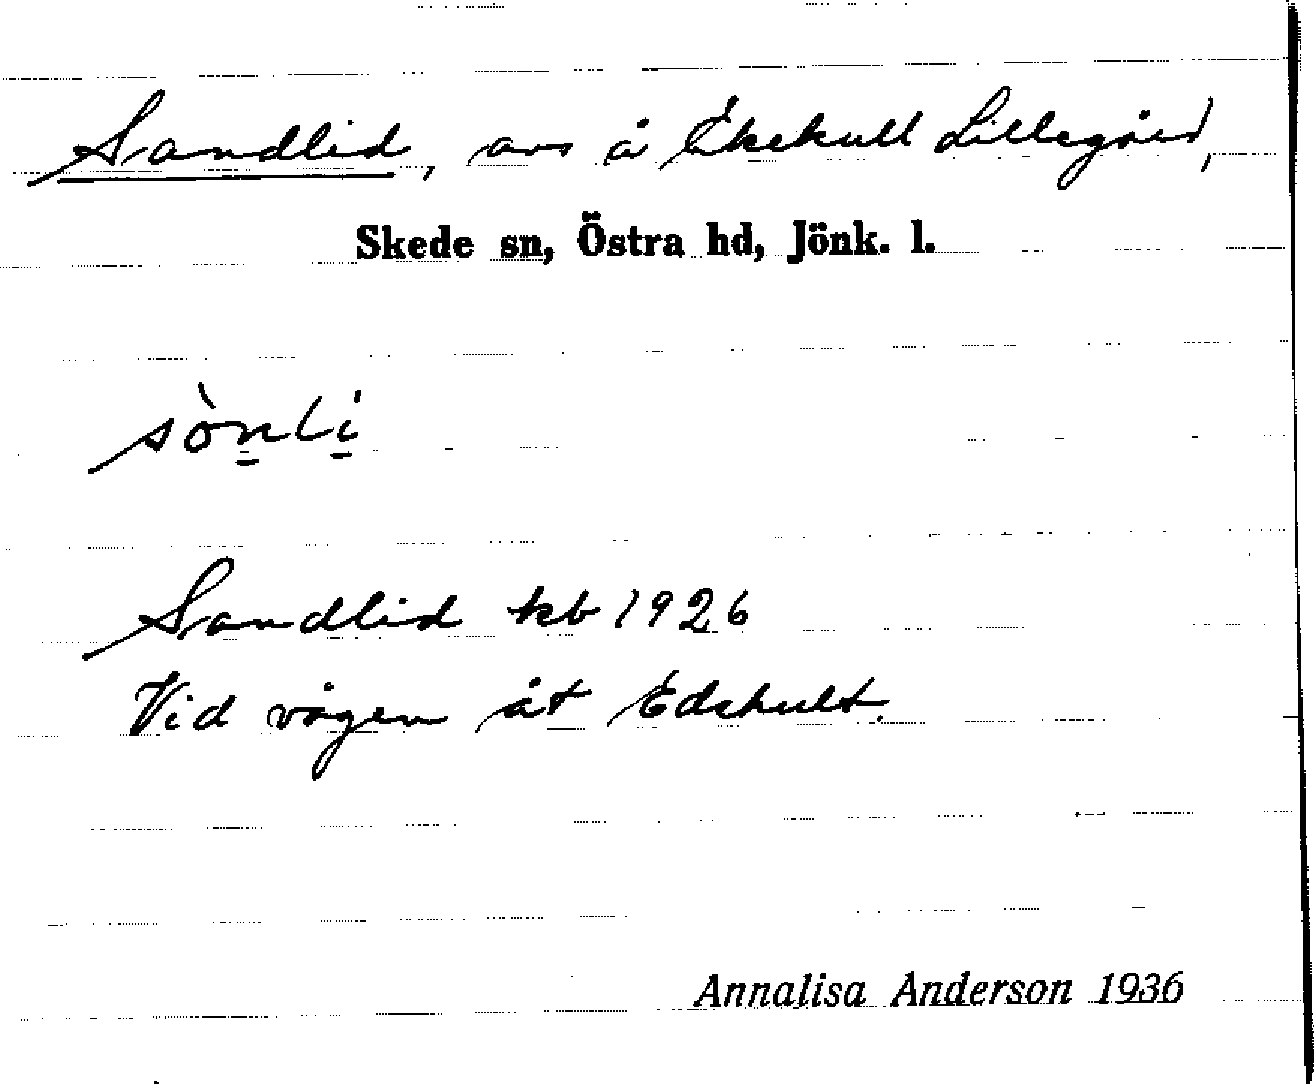 Sandlid, avs å Ekekull Lillegård,
Skede sn, Östra hd, Jönk. l.
sònli
Sandlid kb 1926
Vid vägen åt Edshult.
Annalisa Anderson 1936